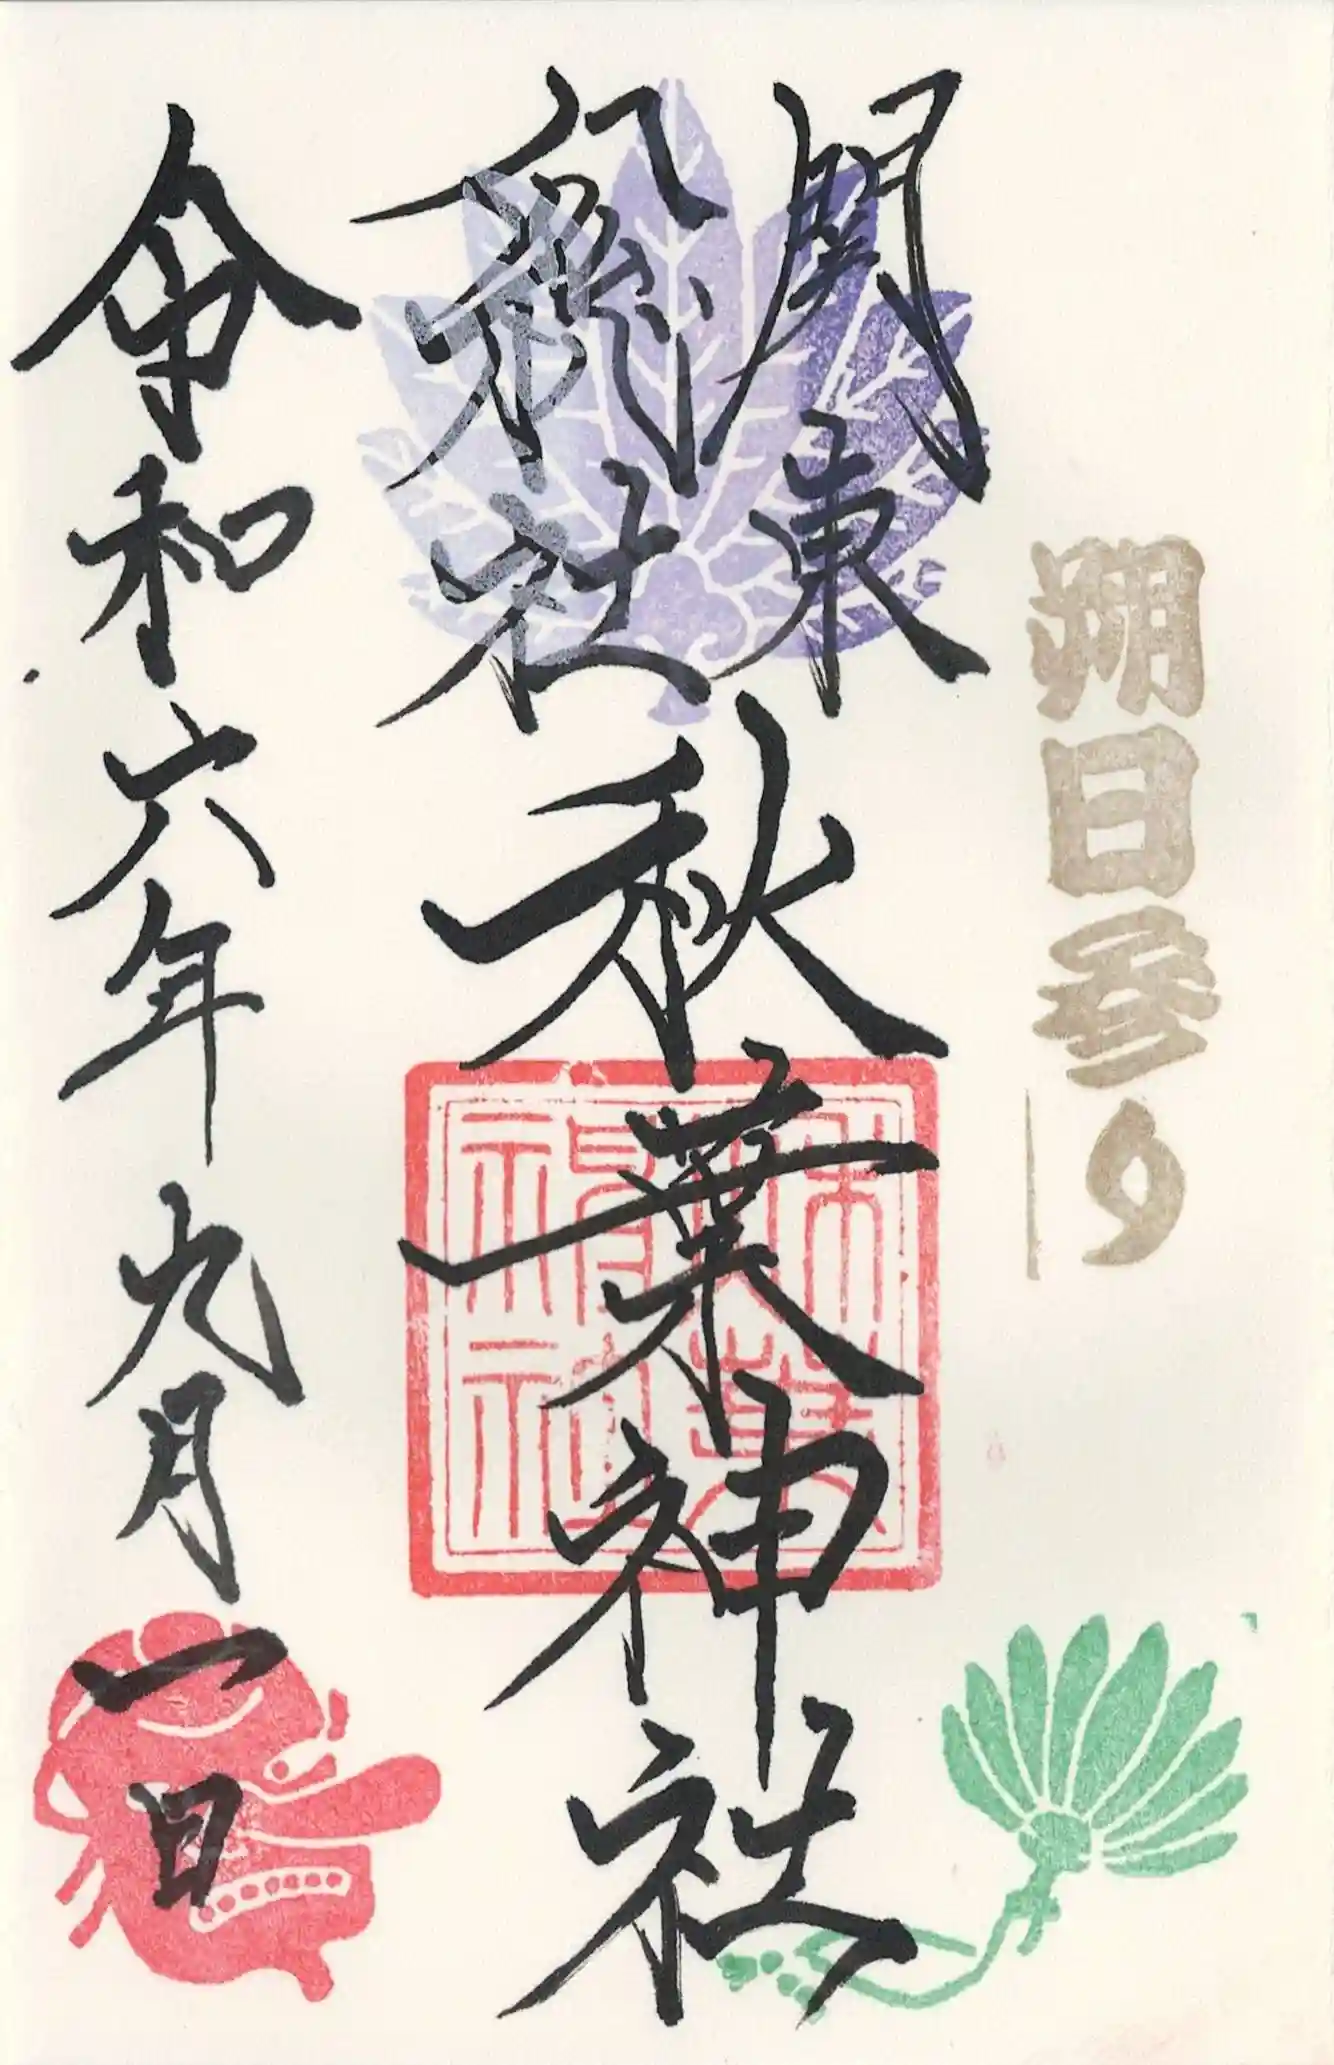 朔日参り
関東
総社
秋葉神社
秋葉
神社
令和六年九月一日